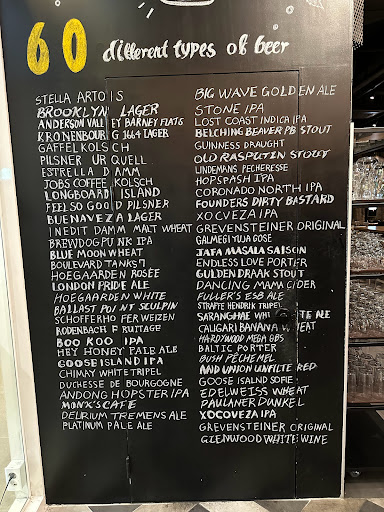 60 different types of beer
STELLA ARTOIS
BROOKLYN LAGER
ANDERSON VALLEY BARNEY FLATS
KRONENBOURG 1664 LAGER
GAFFEL KOLSCH
PILSNER URQUELL
ESTRELLA DAMM
JOBS COFFEE KOLSCH
LONGBOARD ISLAND
FEEL SO GOOD PILSNER
BUENAVEZA LAGER
INEDIT DAMM MALT WHEAT
BREWDOG PUNK IPA
BLUE MOON WHEAT
BOULEVARD TANK 7
HOEGAARDEN ROSÉE
LONDON PRIDE ALE
HOEGAARDEN WHITE
BALLAST POINT SCULPIN
SCHOFFERHOFER WEIZEN
RODENBACH FRUITAGE
BOO KOO IPA
HEY HONEY PALE ALE
GOOSE ISLAND IPA
CHIMAY WHITE TRIPEL
DUCHESSE DE BOURGOGNE
ANDONG HOPSTER IPA
MONK'S CAFE
DELIRIUM TREMENS ALE
PLATINUM PALE ALE
BIG WAVE GOLDEN ALE
STONE IPA
LOST COAST INDICA IPA
BELCHING BEAVER PB STOUT
GUINNESS DRAUGHT
OLD RASPUTIN STOUT
LINDEMANS PECHERESSE
HOPSPASH IPA
CORONADO NORTH IPA
FOUNDERS DIRTY BASTARD
XOCVEZA IPA
GREVENSTEINER ORIGINAL
GALMEGI YUJA GOSE
JAFA MASALA SAISON
ENDLESS LOVE PORTER
GULDEN DRAAK STOUT
DANCING MAMA CIDER
FULLER'S ESB ALE
STRAFFE HENDRIK TRIPEL
SARANGHAE WHITE ALE
CALIGARI BANANA WHEAT
HARDYWOOD MEGA GBS
BALTIC PORTER
BUSH PÊCHE MEL
AND UNION UNFILTE RED
GOOSE ISALND SOFIE
EDELWEISS WHEAT
PAULANER DUNKEL
XOCOVEZA IPA
GREVENSTEINER ORIGINAL
GLENWOOD WHITE WINE